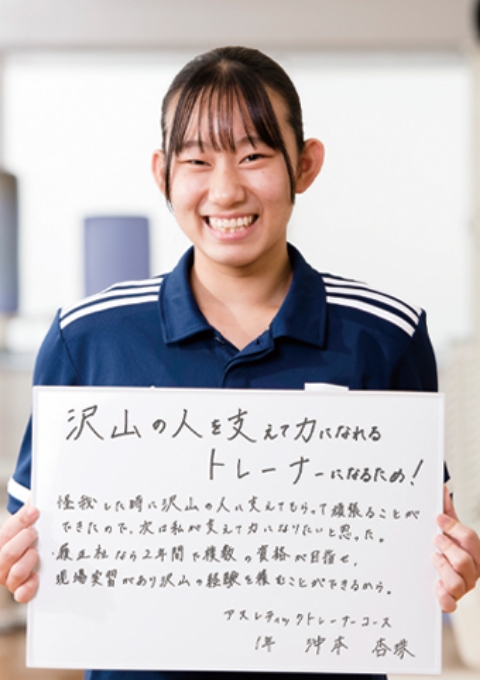 沢山の人を支えて力になれる
トレーナーになるため!
怪我した時に沢山の人に支えてもらって頑張ることが
できたので、次は私が支えて力になりたいと思った。
履正社なら2年間で複数の資格が目指せ、
現場実習があり沢山の経験を積むことができるから。
アスレティックトレーナーコース
1年 沖本 杏珠